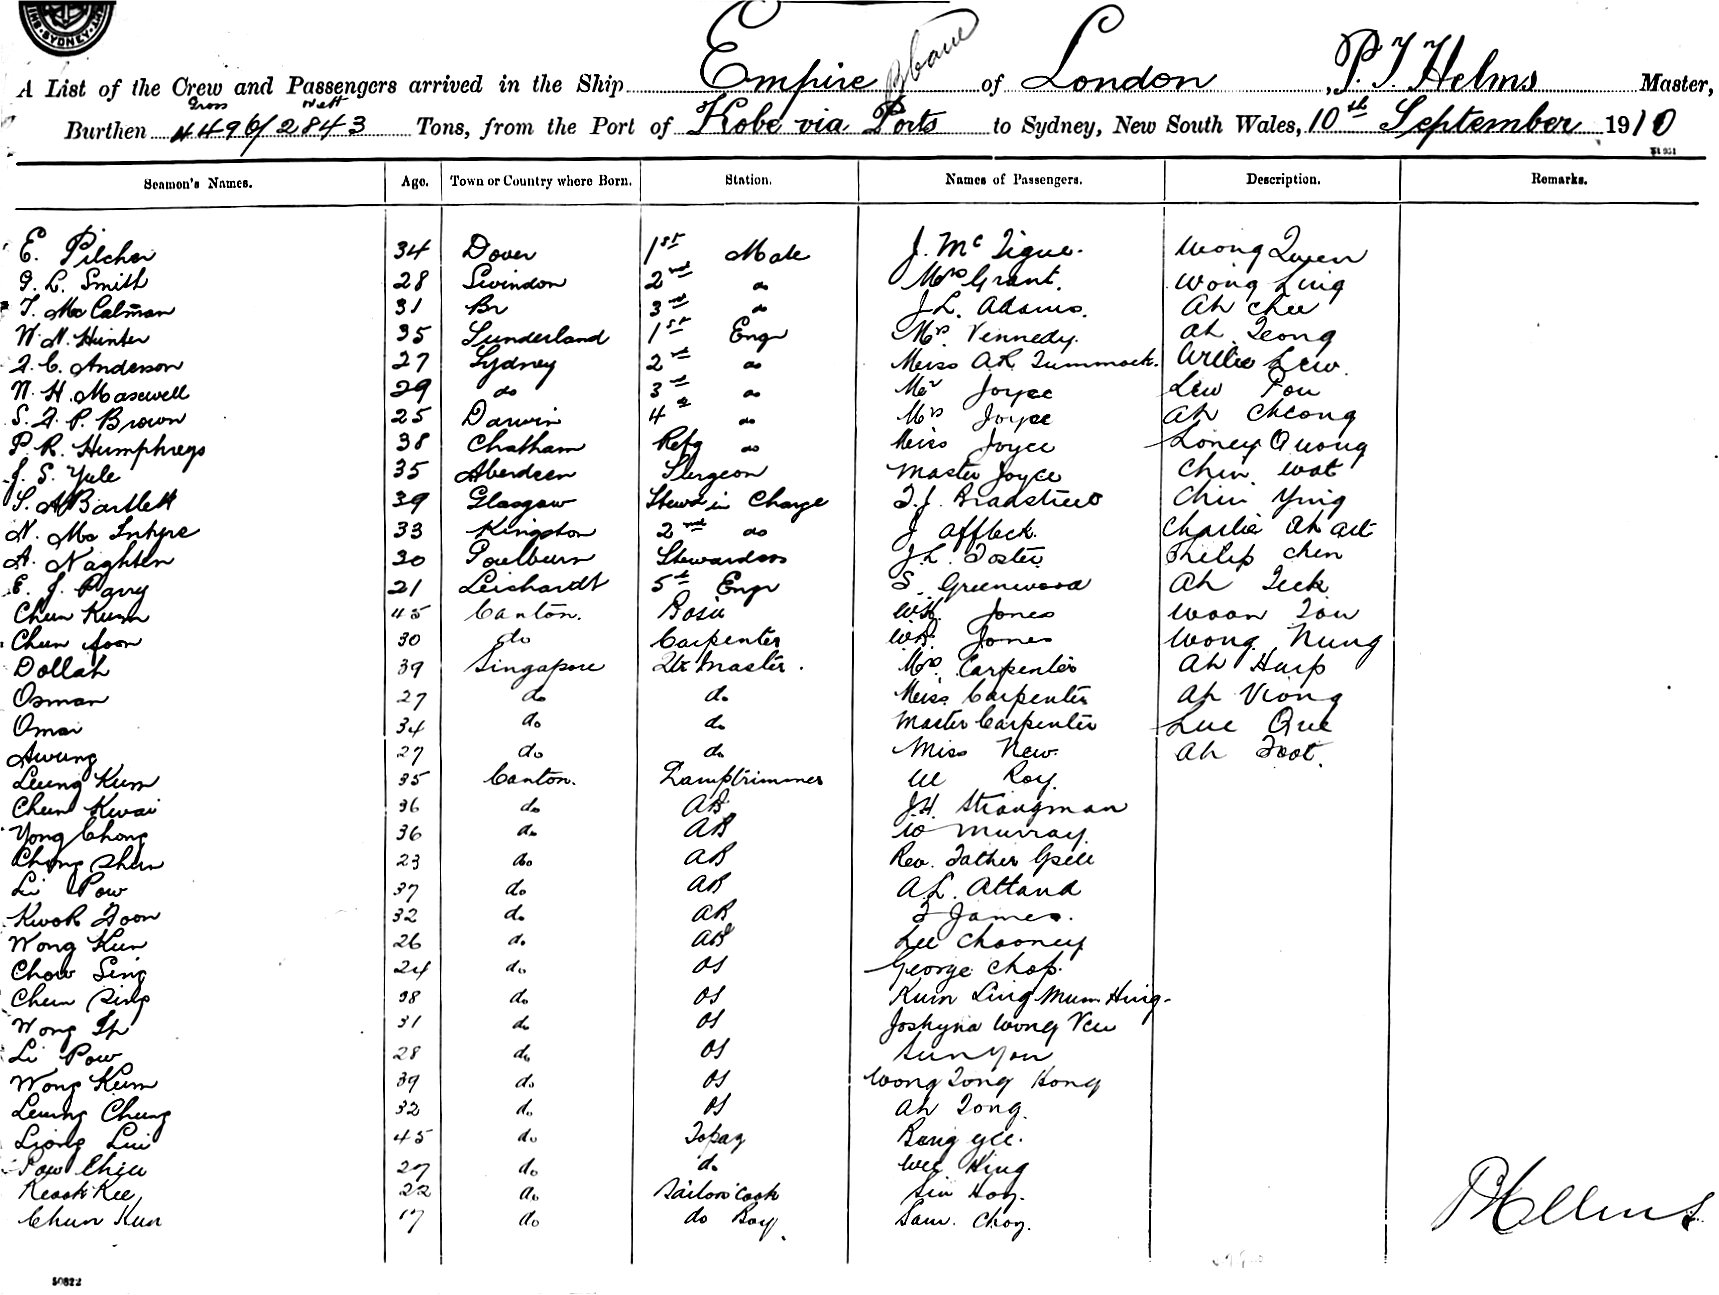 SYDNEY
A List of the Crew and Passengers arrived in the Ship Empire Bbane of London , P. T. Helms Master,
Gross Nett
Burthen 4496/2843 Tons, from the Port of Kobe via Ports to Sydney, New South Wales, 10th September 1910
Seamen's Names. Age. Town or Country where Born. Station. Names of Passengers. Description. Remarks.
E. Pilcher 34 Dover 1st Mate J. McTigue. Wong Quen
G. L. Smith 28 Swindon 2nd do Mrs Grant. Wong Ling
T. McCalman 31 Br 3rd do J L. Adams. Ah Chee
W. N. Hunter 35 Sunderland 1st Engr Mr. Vennedy. Ah Leong
A. C. Anderson 27 Sydney 2nd do Miss A R Tummock. Willie Lew.
N. H. Maxwell 29 do 3rd do Mr Joyce Lew Fou
S. A. P. Brown 25 Darwin 4th do Mrs Joyce Ah Cheong
P. R. Humphreys 38 Chatham Refg do Miss Joyce Loney Quong
J. S. Yule 35 Aberdeen Surgeon Master Joyce Chin Wat
S. A Bartlett 39 Glasgow Stewd in Charge T. J. Chin Ying
N. McIntyre 33 Kingston 2nd do J Affleck. Charlie Ah
A. Naghten 30 Goulburn Stewardess J. L. Foster Philip Chin
E. J. Parry 21 Leichardt 5th Engr S. Greenwood Ah Teck
Chun Kum 45 Canton. Bosn W.H. Jones Woon Tou
Chun Soon 30 do Carpenter W.R. Jones Wong Nung
Dollah 39 Singapore Qtr Master. Mrs. Carpenter Ah Hup
Osman 27 do do Miss Carpenter Ah Viong
Omar 34 do do Master Carpenter Lue Que
Awung 27 do do Miss New. Ah Foot.
Leung Kum 35 Canton. Lamptrimmer W Roy.
Chun Kwai 36 do AB J.H. Strangman
Yong Chong 36 do AB W Murray.
Chong Shun 23 do AB Rev. Father Gsell
Li Pow 37 do AB A. L. Attand
Kwok Foon 32 do AB T James.
Wong Kun 26 do AB Lee Chooney
Chow Sing 24 do OS George Chop.
Chun Sing 38 do OS Kum Ling Mum Hing.
Wong Ip 31 do OS Joshyna Wong Yeu
Li Pow 28 do OS Sun You
Wong Kum 39 do OS Wong Tong Hong
Leung Chung 32 do OS Ah Tong.
Liong Lui 45 do Topaz Bong Yee.
Pow Chiu 27 do do Wee Hing
Kwok Kee 22 do Sailors Cook Sin Hoy.
Chun Kun 17 do do Boy. Sam. Choy.
P T Helms
50822